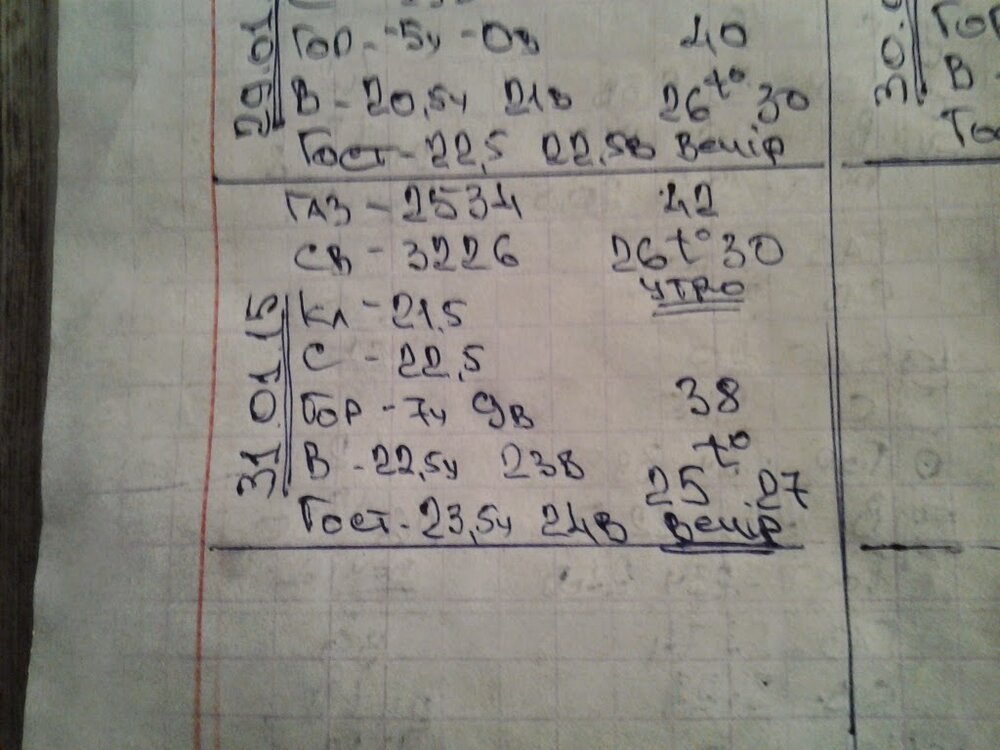 29.01
Гор - -5у -0в 40
В - 20,5у 21в 26 t° 30
Гост - 22,5 22,5в Вечір
ГАЗ - 2534 42
СВ - 3226 26 t° 30
УТРО
31.01.15
Кл - 21,5
С - 22,5
Гор - 7у 9в 38
В - 22,5у 23в t°
25 27
Гост - 23,5у 24в Вечір
30.
Гор
В -
Го